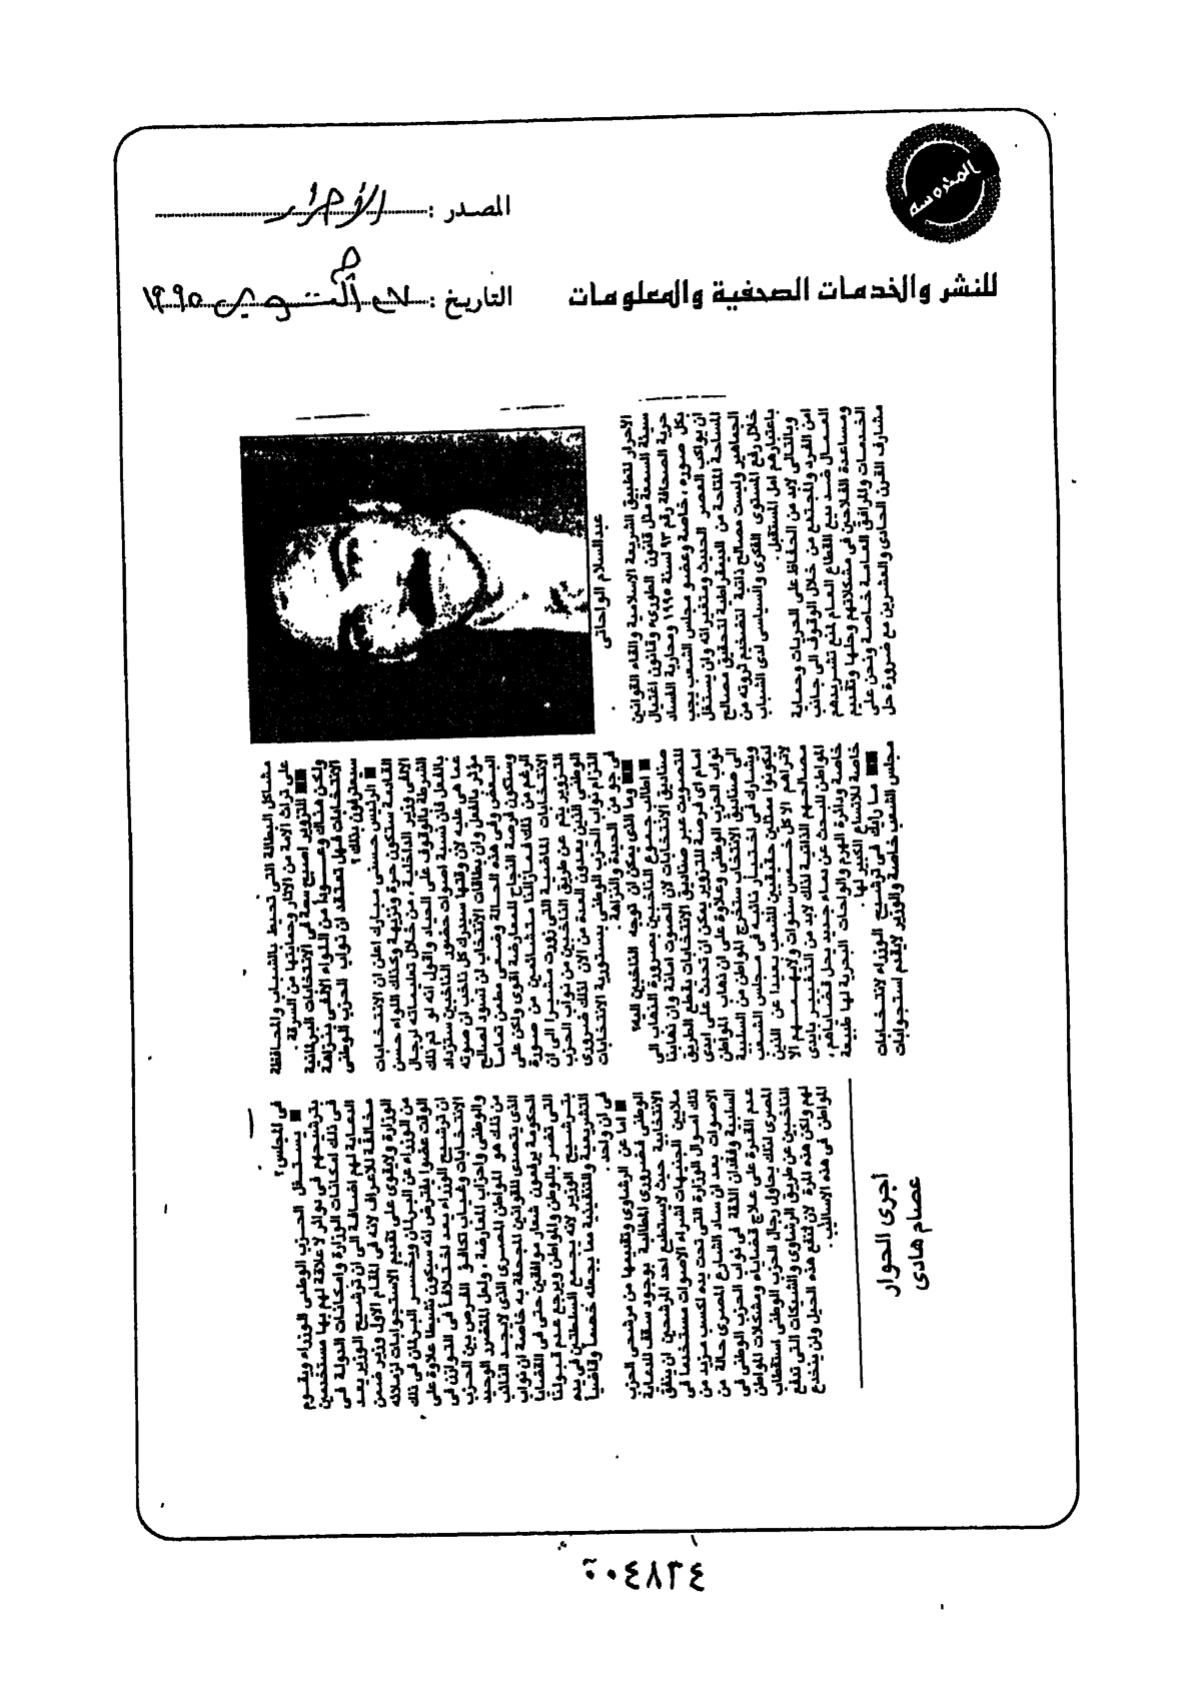 المحروسة
المصدر : الأحرار
للنشر والخدمات الصحفية والمعلومات
التاريخ : ١٩٩٥
عبدالسلام الواحاتى
الأحرار لتطبيق الشريعة الاسلامية والغاء القوانين
سيئة السمعة مثل قانون الطورىء وقانون اغتيال
حرية الصحافة رقم ٩٣ لسنة ١٩٩٥ ومحاربة الفساد
بكل صوره ، خاصة وعضو مجلس الشعب يجب
ان يواكب العصر الحديث ومتغيراته وان يستغل
المساحة المتاحة من الديمقراطية لتحقيق مصالح
الجماهير وليست مصالح ذاتية لتضخيم ثروته من
خلال رفع المستوى الفكرى والسياسى لدى الشباب
باعتبارهم امل المستقبل.
وبالتالى لابد من الحفاظ على الحريات وحماية
امن الفرد والمجتمع من خلال الوقوف الى جانب
العمال ضد بيع القطاع العام لمنع تشريدهم
ومساعدة الفلاحين فى مشكلاتهم وحلها وتقديم
الخدمات والمرافق العامة خاصة ونحن على
مشارف القرن الحادى والعشرين مع ضرورة حل
مشاكل البطالة التى تحيط بالشباب والمحافظة
على تراث الامة من الآثار وحمايتها من السرقة.
■■ التزوير اصبح سمة فى الانتخابات البرلمانية
ولكن هناك وعوداً من اللواء الألفى بنزاهة
الانتخابات فهل تعتقد ان نواب الحزب الوطنى
سيعترفون بذلك؟
■ الرئيس حسنى مبارك اعلن ان الانتخابات
القادمة ستكون حرة ونزيهة وكذلك اللواء حسن
الالفى وزير الداخلية ، من خلال تعليماته لرجال
الشرطة بالوقوف على الحياد واقول أنه لو تم ذلك
بالفعل فإن نسبة اصوات حضور الناخبين ستزداد
عما هى عليه لأن وقتها سيدرك كل ناخب ان صوته
مؤثر بالفعل وان بطاقات الانتخاب لن تسود لصالح
البعض وفى هذه الحالة وضعى مطمئن تماما
وستكون فرصة النجاح للمعارضة اقوى ولكن على
الرغم من ذلك فمازلنا متشائمين من صورة
الانتخابات الماضية التى زورت مشيرا الى ان
التزوير يتم عن طريق الناخبين من نواب الحزب
الوطنى الذين يعدون العدة من الآن لذلك ضرورى
التزام نواب الحزب الوطنى بدستورية الانتخابات
فى جو من الحيدة والنزاهة.
■■ وما الذى يمكن ان توجه الناخبين اليه؟
■ اطالب جموع الناخبين بضرورة الذهاب الى
صناديق الانتخابات لأن الصوت امانة وان ذهابنا
للتصويت عبر صناديق الانتخابات يقطع الطريق
امام اى فرصة للتزوير يمكن ان تحدث على ايدى
نواب الحزب الوطنى وعلاوة على ان ذهاب المواطن
الى صناديق الانتخاب ستخرج المواطن من السلبية
ويشارك فى اختيار نائبه فى مجلس الشعب
ليكونوا ممثلين حقيقيين للشعب بعيدا عن الذين
لا تراهم الا كل خمس سنوات ولايهمهم الا
مصالحهم الذاتية لذلك لابد من التغيير بأيدى
المواطن للبحث عن دماء جديد يحل قضاياهم ،
خاصة ودائرة الهرم والواحات البحرية لها طبيعة
خاصة للاتساع الكبير لها.
■■ ما رأيك فى ترشيح الوزراء لانتخابات
مجلس الشعب خاصة والوزير لايقدم استجوابات
فى المجلس؟
■ يستغل الحزب الوطنى الوزراء ويقوم
بترشيحهم فى دوائر لا علاقة لهم بها مستخدمين
فى ذلك امكانات الوزارة وامكانات الدولة فى
الدعاية لهم اضافة الى ان ترشيح الوزير يعد
مخالفة للأعراف لأنه فى المقام الأول وزير ضمن
الوزارة ولايقوى على تقديم الاستجوابات لزملائه
من الوزراء عن البرلمان ويخسر البرلمان فى ذلك
الوقت عضوا يفترض أنه سيكون نشيطا علاوة على
ان ترشيح الوزراء يعد اختلافاً فى التوازن فى
الانتخابات وغياب تكافؤ الفرص بين الحزب
والوطنى واحزاب المعارضة ، ولعل المتضرر الوحيد
من ذلك هو المواطن المصرى الذى لايجد النائب
الذى يتصدى للقوانين المجحفة به خاصة ان نواب
الحكومة يرفعون شعار موافقين حتى فى القضايا
التى تضر بالوطن والمواطن ويرجع عدم قبولنا
بترشيح الوزير لأنه يجمع السلطتين فى يده
التشريعية والتنفيذية مما يجعله خصماً وقاضياً
فى آن واحد.
■ اما عن الرشاوى وتقديمها من مرشحى الحزب
الوطنى فضرورى المطالبة بوجود سقف للدعاية
الانتخابية حيث لايستطيع احد المرشحين ان ينفق
ملايين الجنيهات لشراء الاصوات مستخدما فى
ذلك اموال الوزارة التى تحت يده لكسب مزيد من
الاصوات بعد ان ساد الشارع المصرى حالة من
السلبية وفقدان الثقة فى نواب الحزب الوطنى فى
عدم القدرة على علاج قضاياه ومشكلات المواطن
المصرى لذلك يحاول رجال الحزب الوطنى استقطاب
الناخبين عن طريق الرشاوى والشيكات التى تدفع
لهم ولكن هذه المرة لان تنفع هذه الحيل ولن ينخدع
المواطن فى هذه الاساليب.
أجرى الحوار
عصام هادى